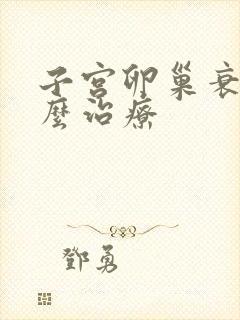 子宫卵巢衰
麼治療
鄧勇